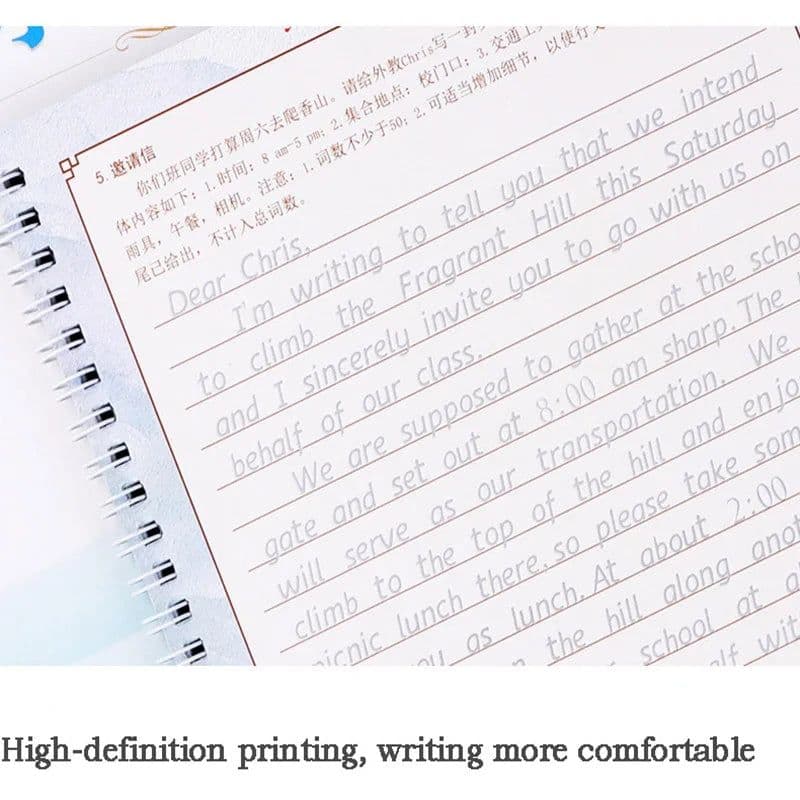 5.邀请信
你们班同学打算周六去爬香山。请给外教Chris写一封
体内容如下:1.时间:8 am-5 pm;2.集合地点:校门口;3.交通工
雨具,午餐,相机。注意:1.词数不少于50;2.可适当增加细节,以使行文
尾已给出,不计入总词数。
Dear Chris,
I'm writing to tell you that we intend
to climb the Fragrant Hill this Saturday
and I sincerely invite you to go with us on
behalf of our class.
We are supposed to gather at the scho
gate and set out at 8:00 am sharp. The
will serve as our transportation. We
climb to the top of the hill and enjo
picnic lunch there, so please take som
you as lunch. At about 2:00
the hill along anot
school at a
elf wit
High-definition printing, writing more comfortable